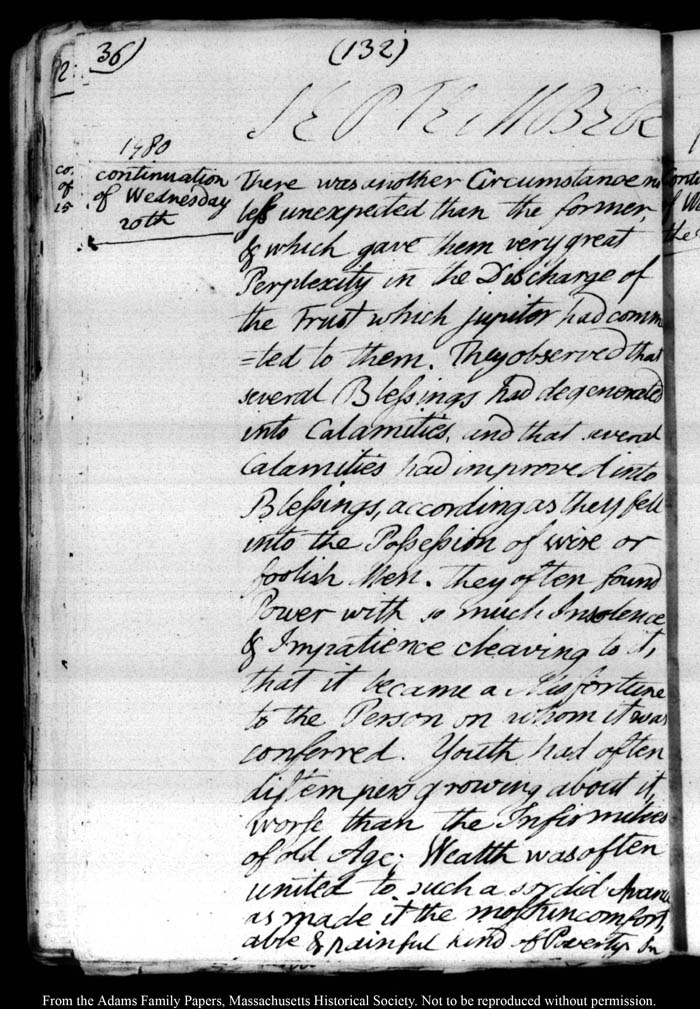 36)
(132)
2:
SEPTEMBER
1780
co.
of
15
continuation
of Wednesday
20th
There was another Circumstance no
less unexpected than the former,
& which gave them very great
Perplexity in the Discharge of
the Trust which jupiter had comm
=ted to them. They observed that
several Blessings had degenerated
into Calamities, and that several
Calamities had improved into
Blessings, according as they fell
into the Possession of wise or
foolish Men. they often found
Power with so much Insolence
& Impatience cleaving to it,
that it became a Misfortune
to the Person on whom it was
conferred. Youth had often
distempers growing about it,
worse than the Infirmities
of old Age; Wealth was often
united to such a sordid Avari
as made it the most uncomfort,
able & painful kind of Poverty. On
From the Adams Family Papers, Massachusetts Historical Society. Not to be reproduced without permission.